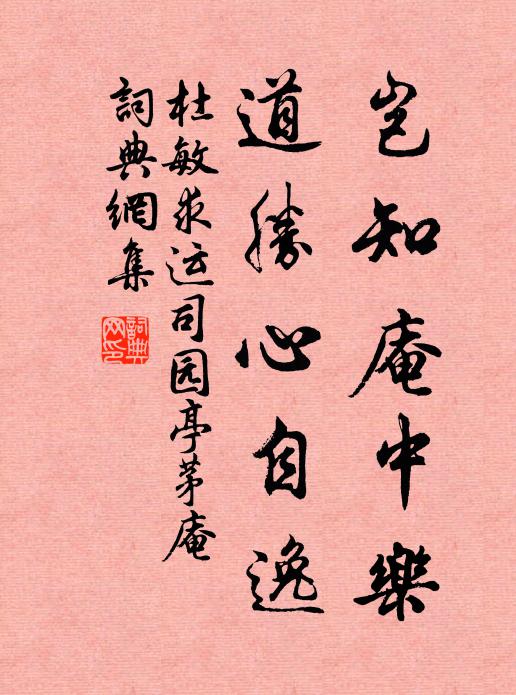 岂知庵中樂
道勝心自逸
杜敏求运司园亭茅庵
詞典網集
詞典网印